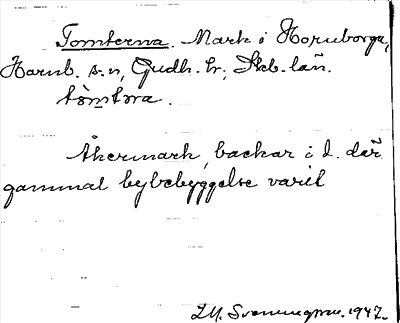 Tomterna. Mark i Hornborga,
Harnb. s:n, Gudh. hr, Skb. län.
tòmtra.
Åkermark, backar i d. där
gammal bybebyggelse varit
1947.